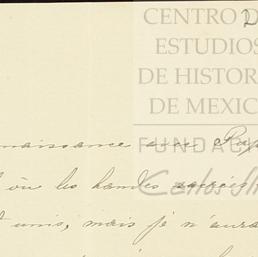 CENTRO D
ESTUDIOS
DE HISTOR
DE MEXIC
FUNDACI
Carlos Sl
naissance avec
où les bandes
unis, mais je n'aura